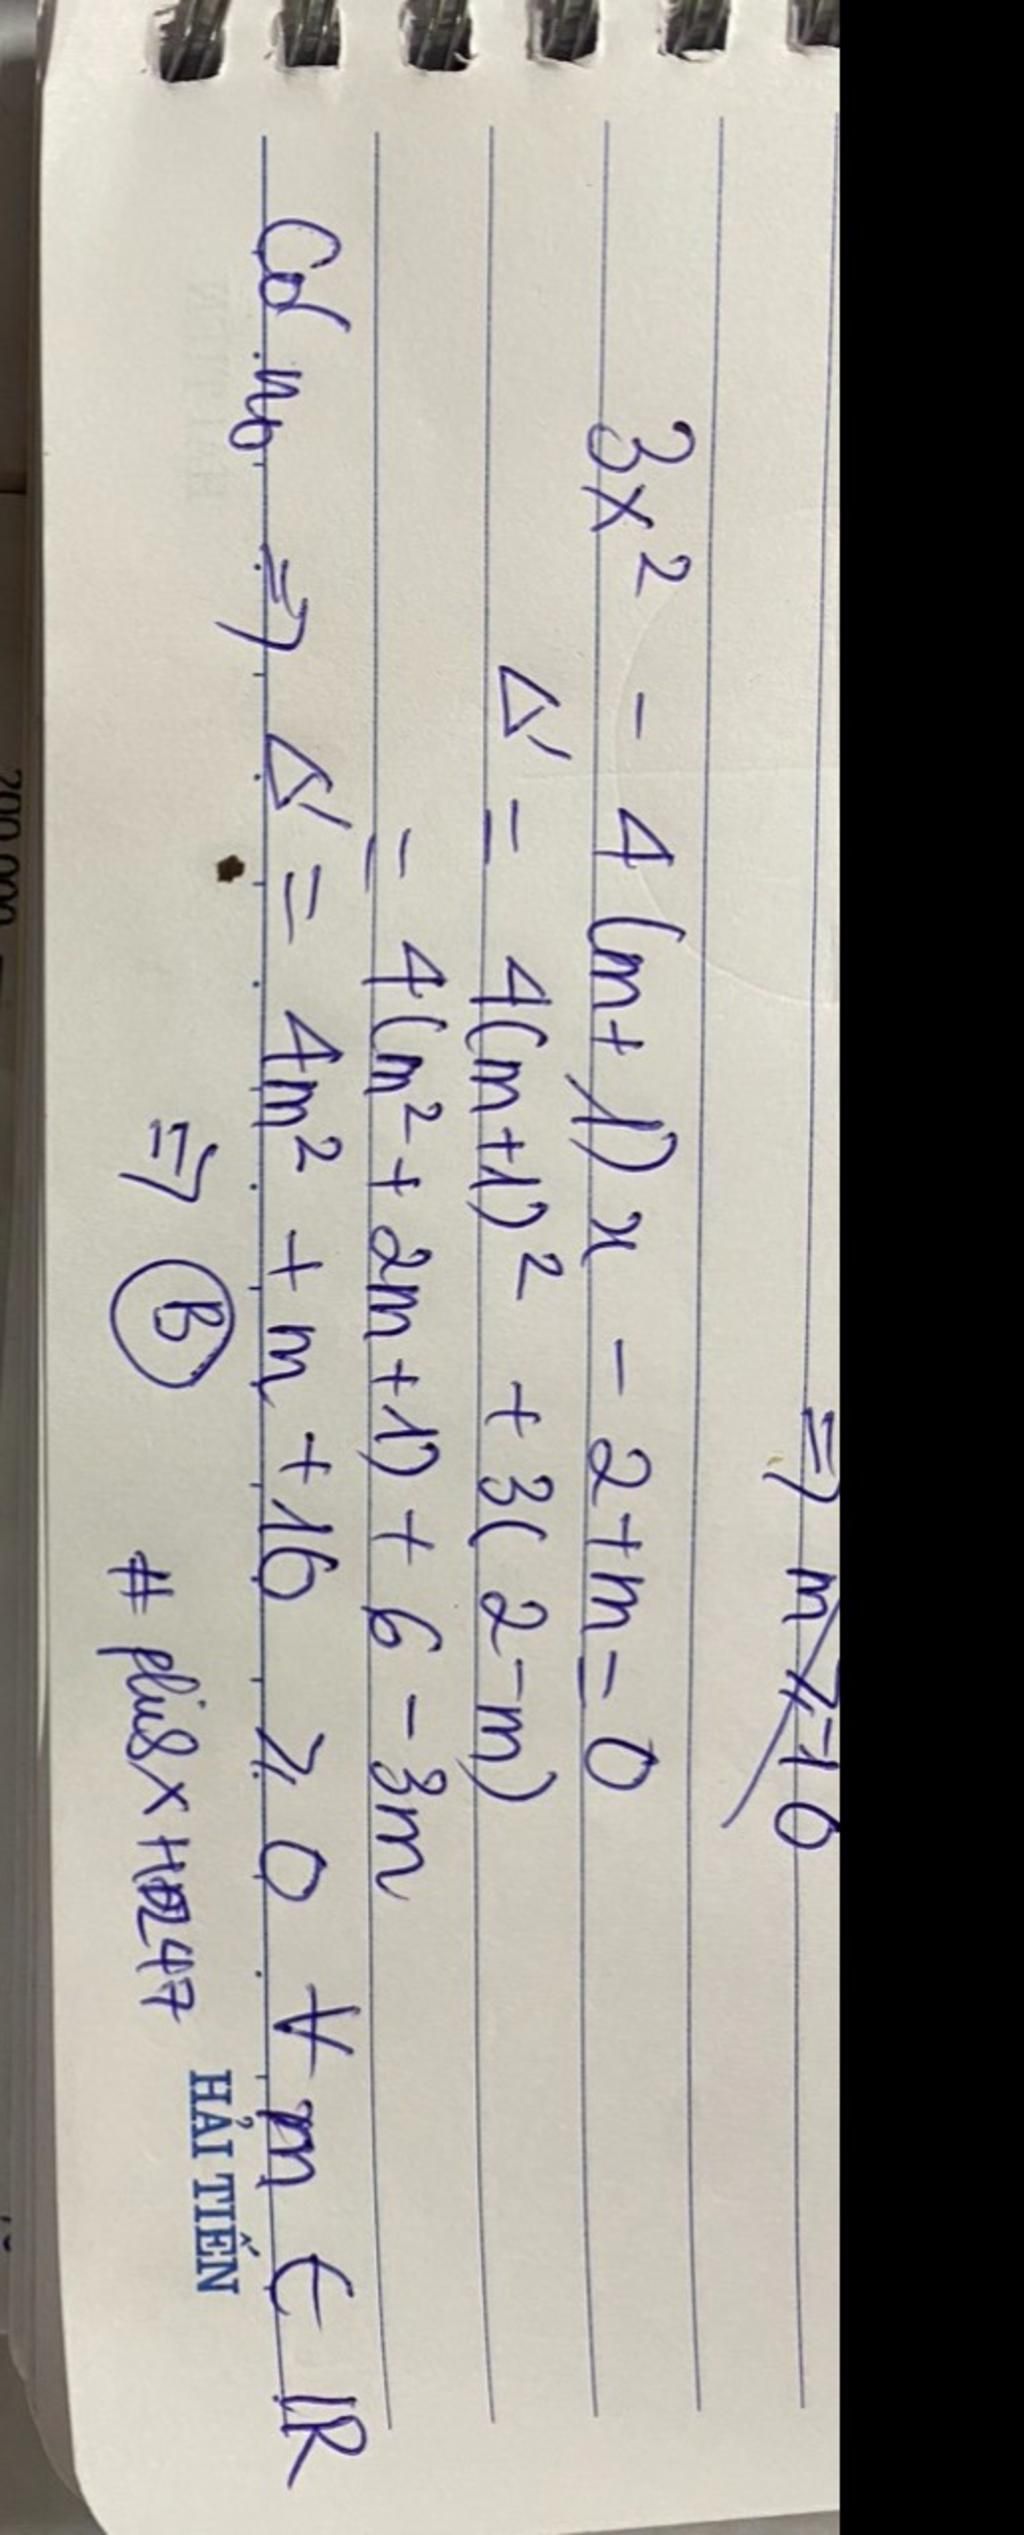 => m ≥ -16
3x² - 4(m+1)x - 2+m = 0
Δ' = 4(m+1)² + 3(2-m)
= 4(m²+2m+1) + 6 - 3m
Có no => Δ' = 4m² + m + 16 ≥ 0 ∀ m ∈ IR
=> B
# plusxH247
HẢI TIẾN
200.000